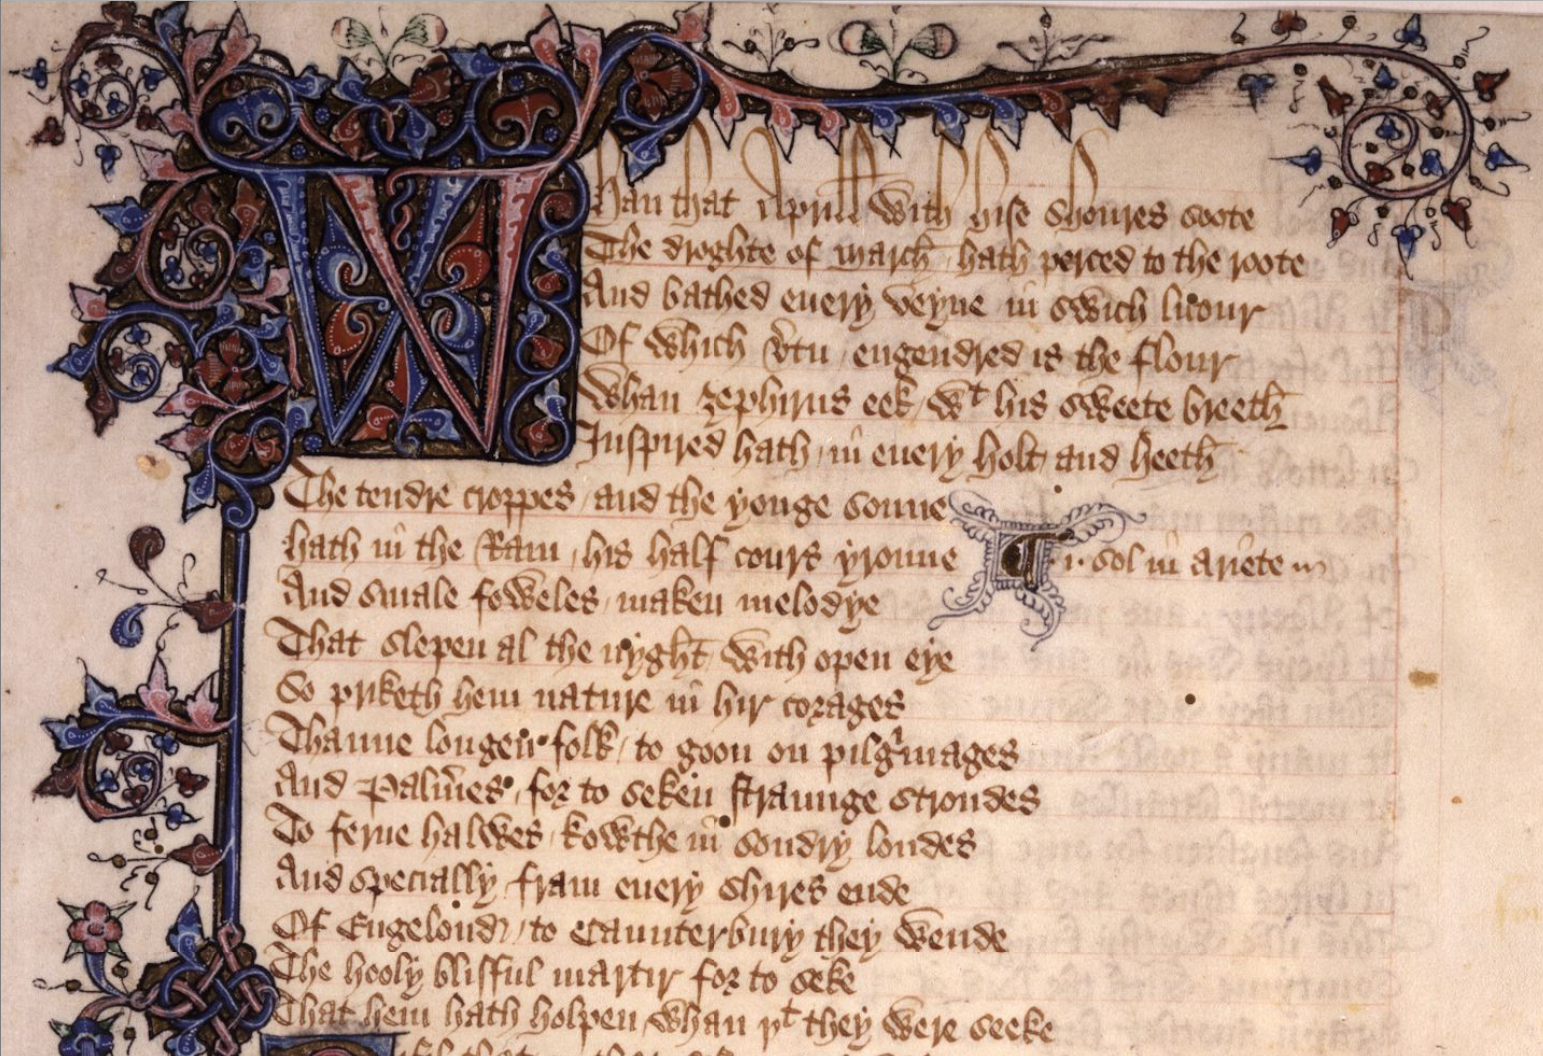 Whan that Aprill with hise shoures soote
The droghte of march hath perced to the roote
And bathed euery veyne in swich licour
Of which v̾tu engendred is the flour
Whan zephirus eek wᵗ his sweete breeth
Inspired hath in euery holt and heeth
The tendre croppes and the yonge sonne
hath in the Ram his half cours yronne ¶ .i. sol in ariete
And smale foweles maken melodye
That slepen al the nyght with open eye
So priketh hem nature in hir corages
Thanne longen folk to goon on pilgͥmages
And Palm̾es for to seken straunge strondes
To ferne halwes kowthe in sondry londes
And specially fram euery shires ende
Of Engelond to Caunterbury they wende
The hooly blisful martir for to seke
That hem hath holpen whan þᵗ they were seeke